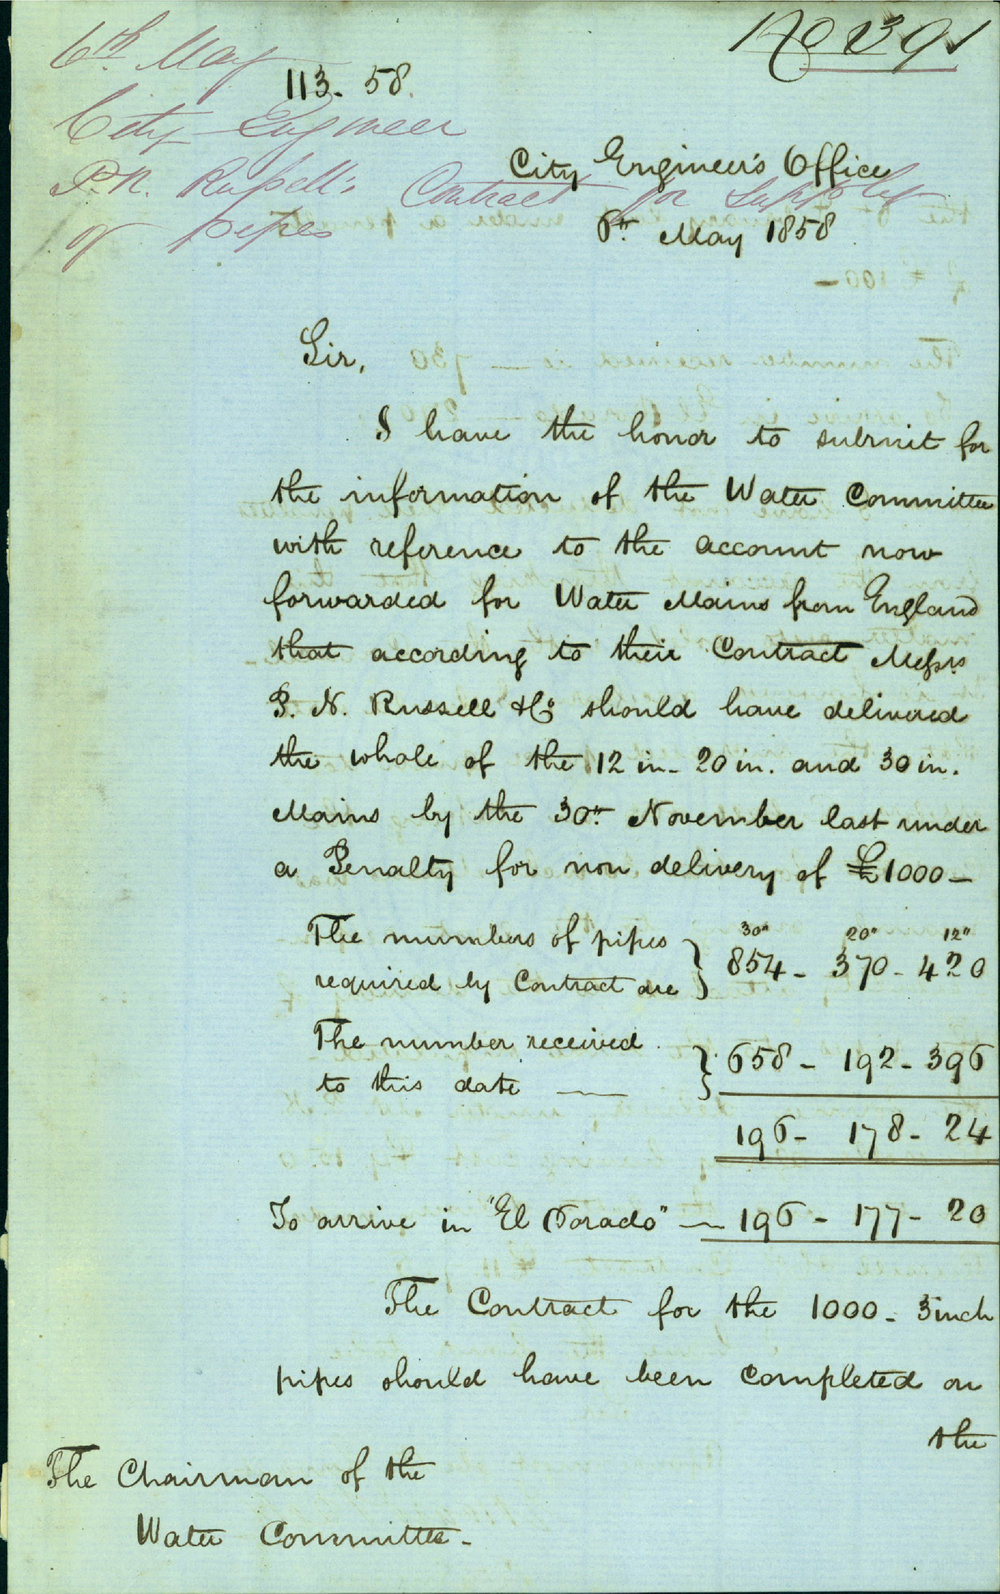 No 391
6th May
113. 58.
City Engineer
P. N. Russell's Contract for supply
of pipes
City Engineer's Office
6th May 1858
Sir,
I have the honor to submit for
the information of the Water Committee
with reference to the account now
forwarded for Water Mains from England
that according to their Contract Messrs
P. N. Russell & Co should have delivered
the whole of the 12 in - 20 in. and 30 in.
Mains by the 30th November last under
a Penalty for non delivery of £1000 -
30" 20" 12"
The numbers of pipes
required by Contract are } 854 - 370 - 420
The number received
to this date — } 658 - 192 - 396
196 - 178 - 24
To arrive in "El Dorado" — 196 - 177 - 20
The Contract for the 1000 - 3 inch
pipes should have been completed on
the
The Chairman of the
Water Committee -